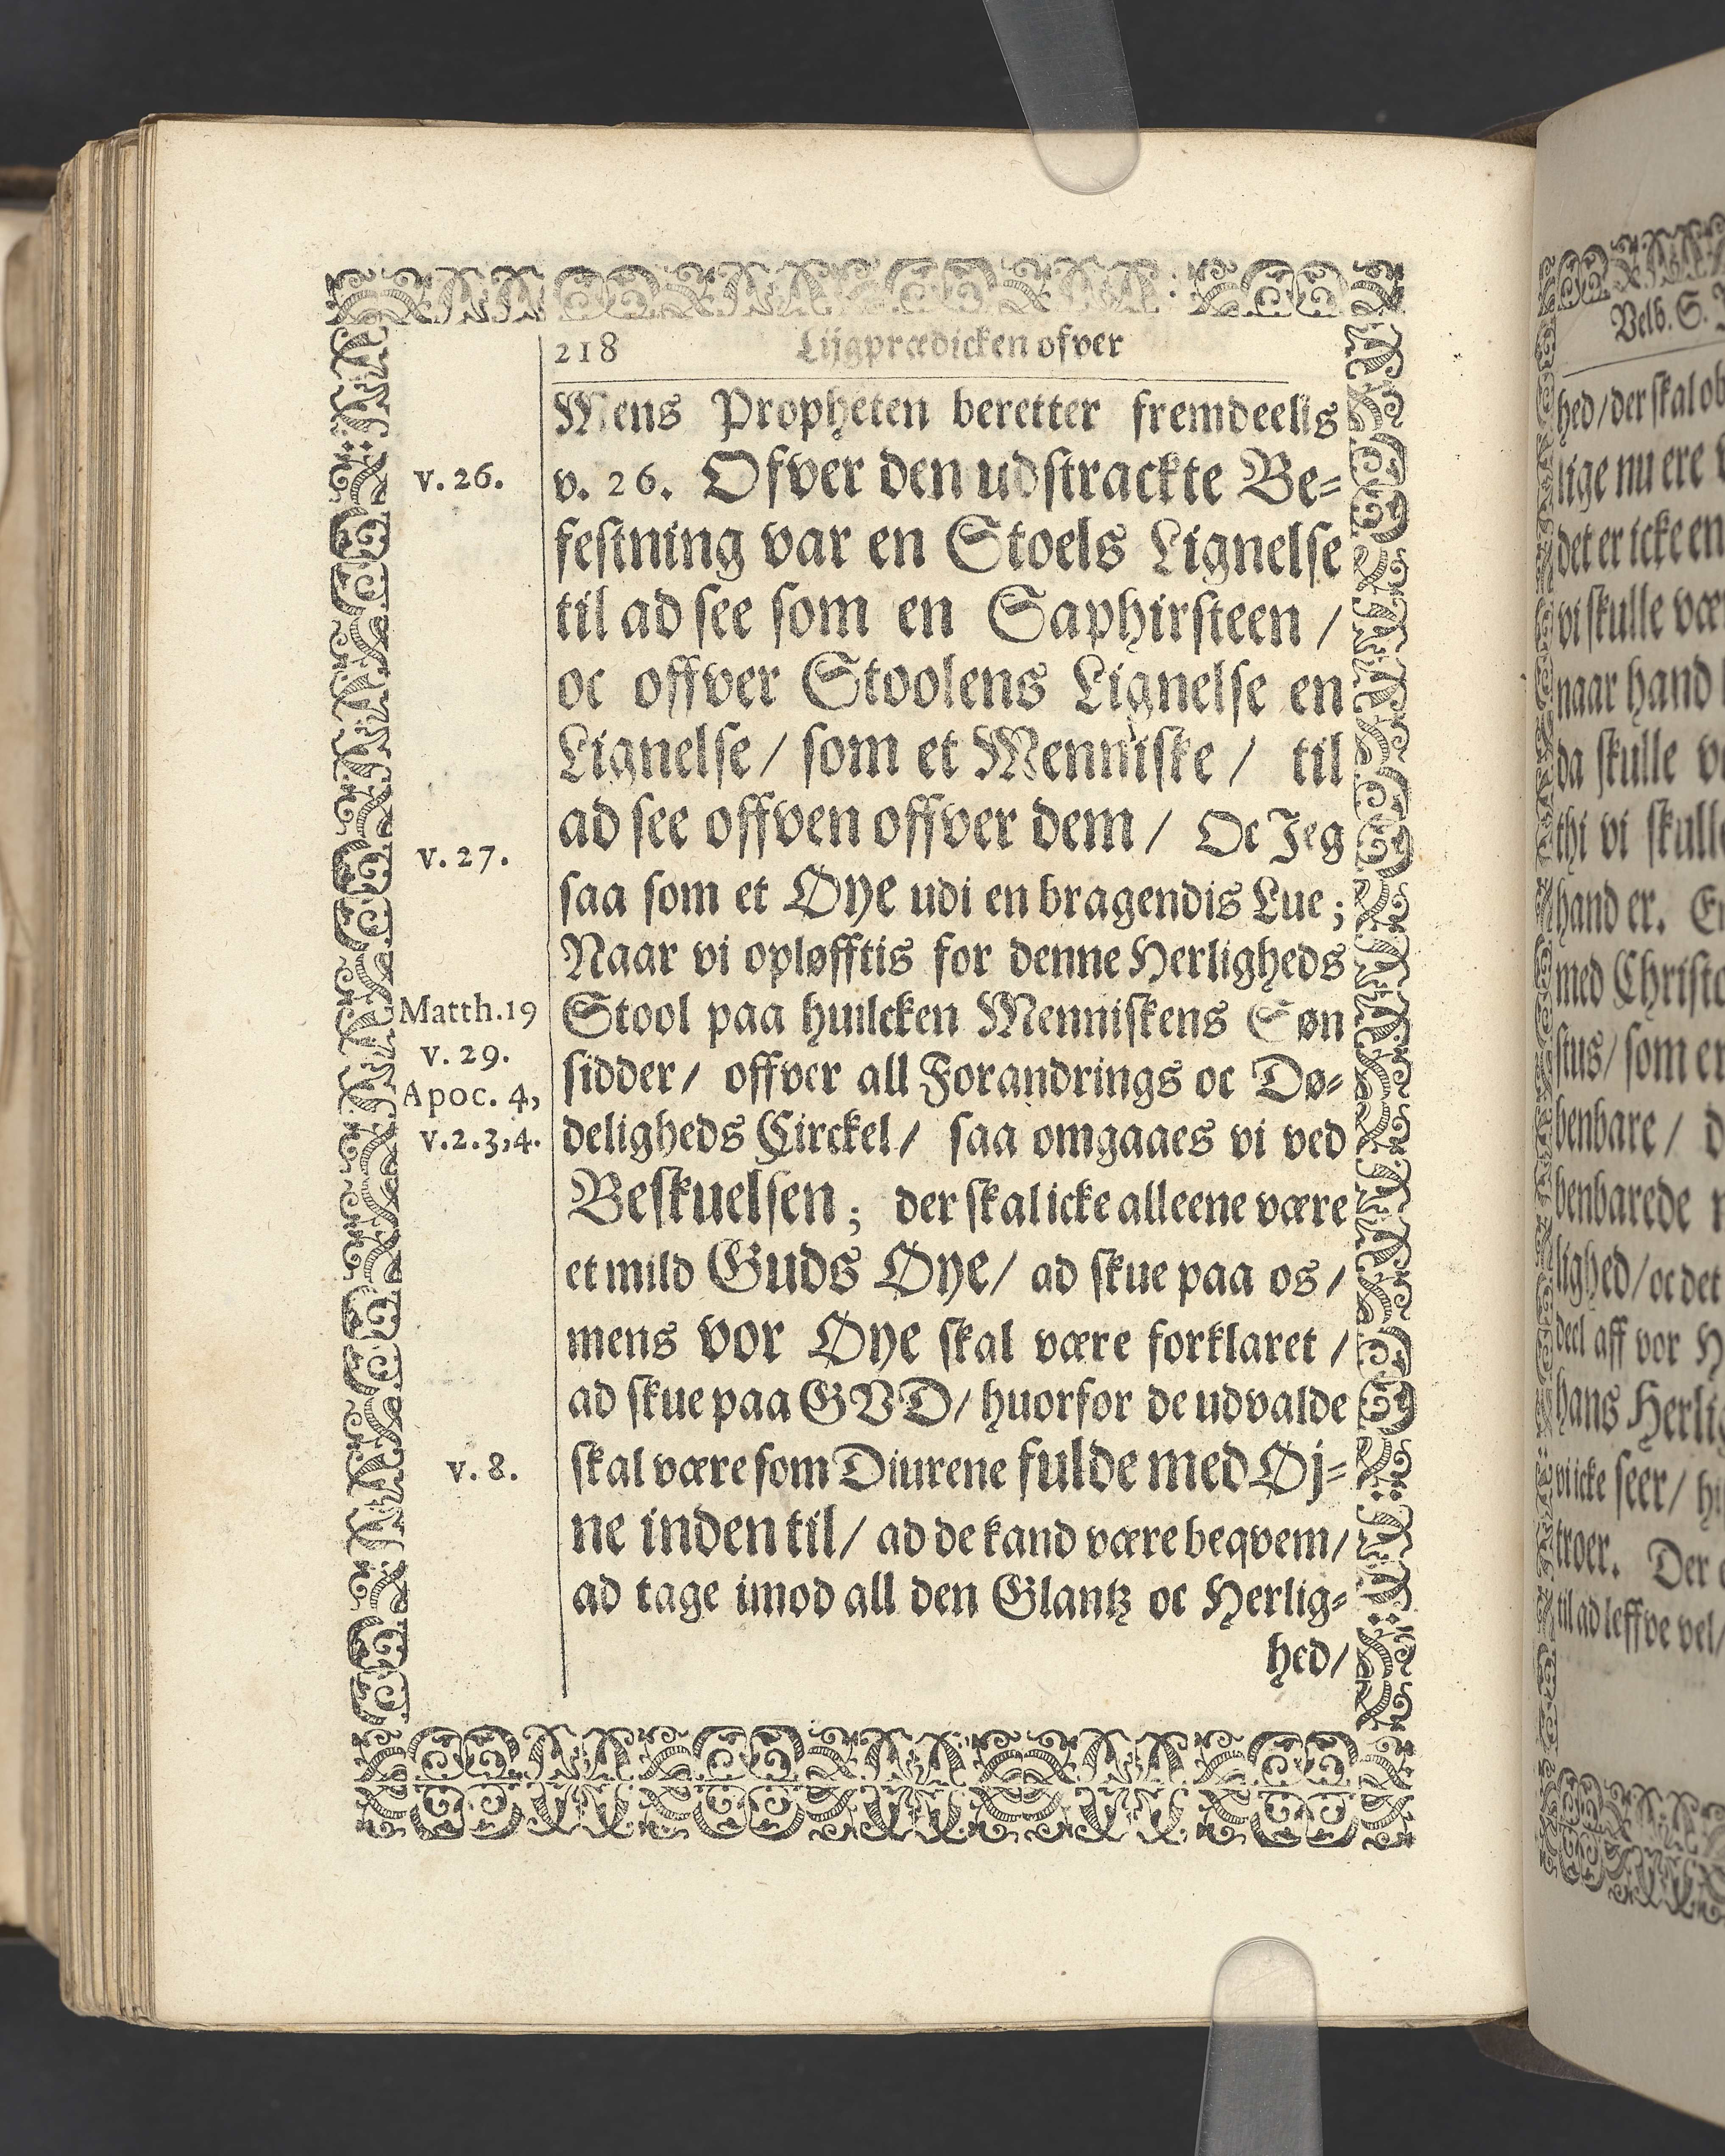 218 Lijgprædicken ofver
Mens Propheten beretter fremdeelis
v. 26.
v. 26. Ofver den udstrackte Be-
festning var en Stoels Lignelse
til ad see som en Saphirsteen /
oc offver Stoolens Lignelse en
Lignelse / som et Menniske / til
ad see offven offver dem / Oc Jeg
v. 27.
saa som et Øye udi en bragendis Lue ;
Naar vi opløfftis for denne Herligheds
Matth.19
Stool paa huilcken Menniskens Søn
v. 29.
sidder / offver all Forandrings oc Dø-
Apoc. 4,
deligheds Circkel / saa omgaaes vi ved
v.2.3,4.
Beskuelsen ; der skal icke alleene være
et mild Guds Øye / ad skue paa os /
mens vor Øye skal være forklaret /
ad skue paa GVD / huorfor de udvalde
v. 8.
skal være som Diurene fulde med Øj-
ne inden til / ad de kand være beqvem /
ad tage imod all den Glantz oc Herlig-
hed /
Velb. S.
hed / der skal
lige nu ere
det er icke en
vi skulle
naar hand
da skulle
thi vi
hand er.
med
stus / som er
benbare /
benbarede
lighed / oc det
deel aff vor
hans
vi icke seer /
troer. Der
til ad leffve vel /